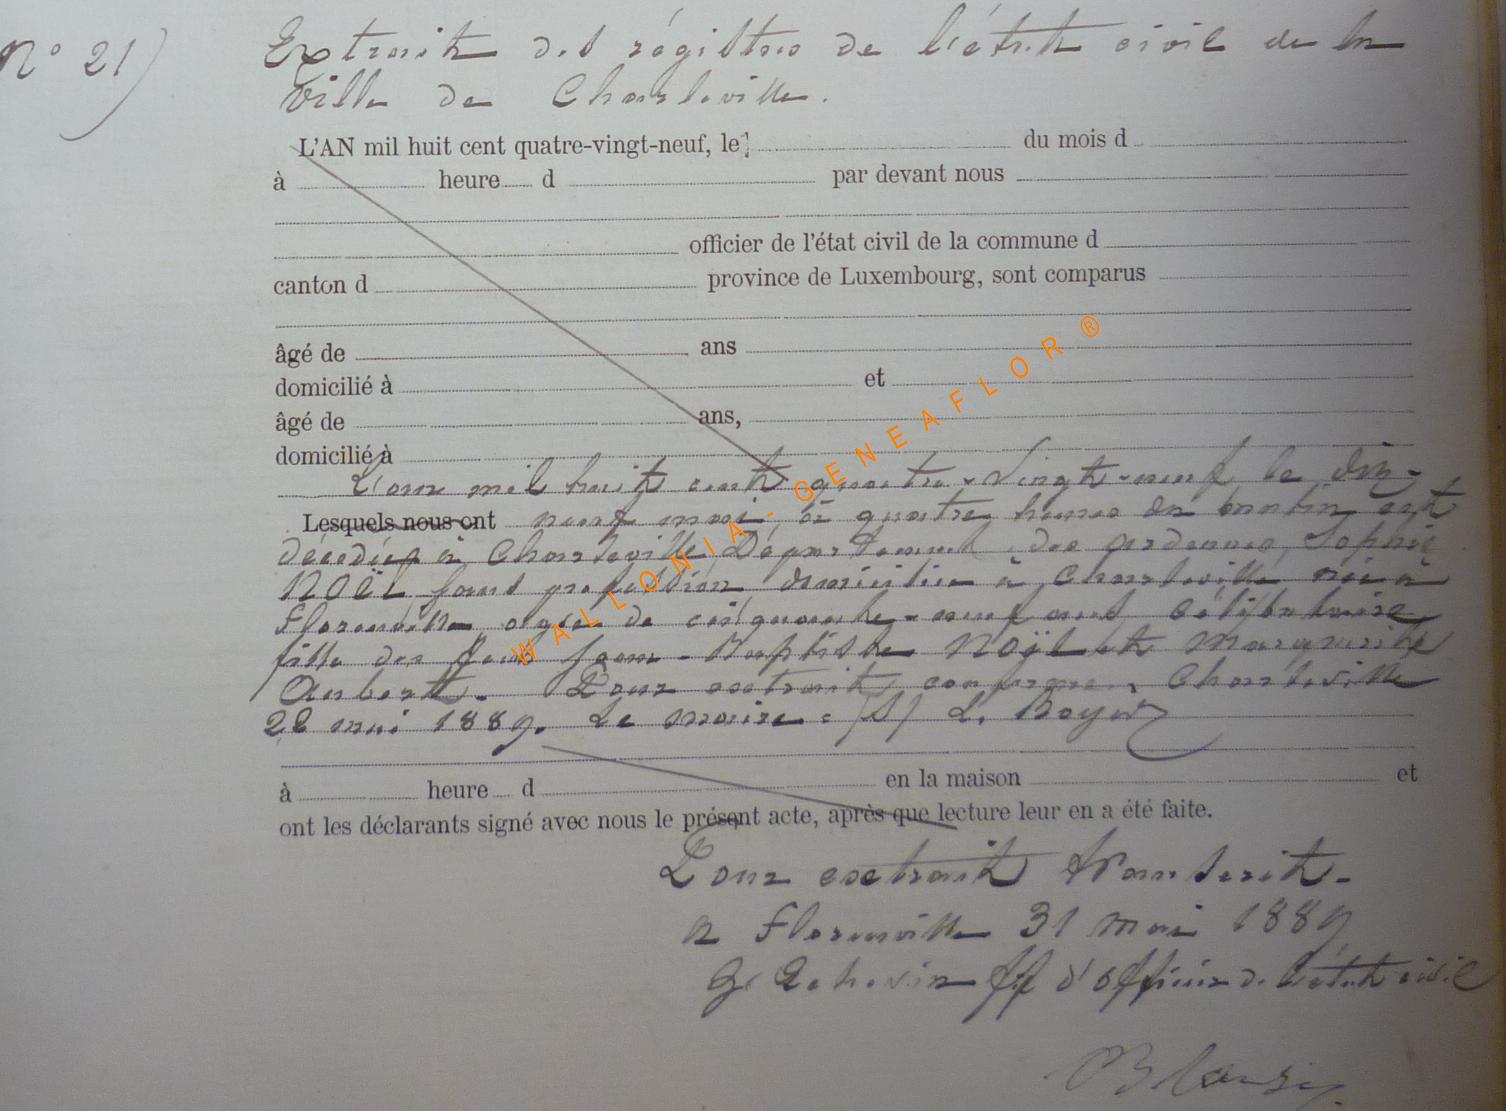 N° 21)
Extrait des régistres de l'état civil de la
ville de Charleville.
L'AN mil huit cent quatre-vingt-neuf, le du mois d
à heure d par devant nous
officier de l'état civil de la commune d
canton d province de Luxembourg, sont comparus
âgé de ans
domicilié à et
âgé de ans,
domicilié à
L'an mil huit cent quatre-vingt-neuf le dix-
Lesquels nous ont neuf mai, à quatre heures du matin est
décédée à Charleville Département des Ardennes, Sophie
NOËL sans profession domiciliée à Charleville née à
Florenville agée de cinquante-neuf ans célibataire
fille des feus Jean-Baptiste Noël et Marguerite
Pour extrait conforme, Charleville
22 mai 1889. Le maire: (S) L. Boyer
à heure d en la maison et
ont les déclarants signé avec nous le présent acte, après que lecture leur en a été faite.
Pour extrait transcrit
à Florenville 31 mai 1889
L'Echevin ff d'officier de l'état civil
WALLONIA - GENEAFLOR ®